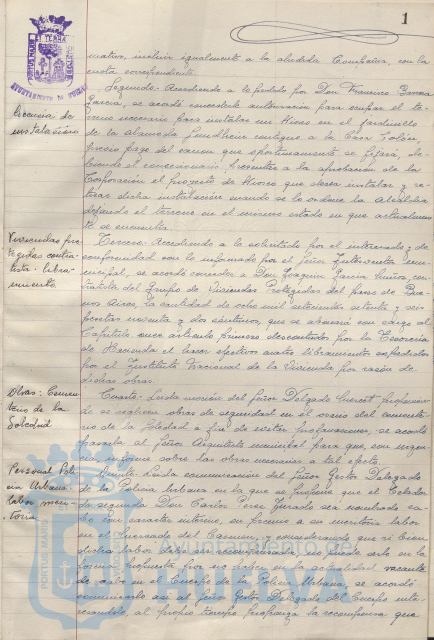 1
PORTUS MARIS ET TERRAE CUSTODIA
AYUNTAMIENTO DE HUELVA
mativa, incluir igualmente a la aludida Compañia, con la
cuota correspondiente.
Licencia de
instalación
Segundo: Accediendo a lo pedido por Don Francisco
Garcia, se acordó concederle autorización para ocupar el te-
rreno necesario para instalar un Kiosco en el jardinillo
de la Alameda Sundheim contiguo a la Casa Colón,
previo pago del canon que oportunamente se fijará, de-
biendo el concesionario presentar a la aprobación de la
Corporación el proyecto de Kiosco que desea instalar y re-
tirar dicha instalación cuando se lo ordene la Alcaldia
dejando el terreno en el mismo estado en que actualmen-
te se encuentra.
Viviendas pro-
tegidas contra-
tista: libra-
miento
Tercero: Accediendo a lo solicitado por el interesado y de
conformidad con lo informado por el Señor Interventor mu-
nicipal, se acordó conceder a Don Joaquin Garcia con-
tratista del Grupo de Viviendas Protegidas del paseo de Bue-
nos Aires, la cantidad de ocho mil setecientas setenta y seis
pesetas noventa y dos céntimos, que se abonará con cargo al
Capitulo once articulo primero descontados por la Tesoreria
de Hacienda al hacer efectivos cuatro libramientos expedidos
por el Instituto Nacional de la Vivienda por razón de
dichas obras.
Obras: Cemen-
terio de la
Soledad
Cuarto: Leida moción del Señor Delgado proponien-
do se realicen obras de seguridad en el osario del cemente-
rio de la Soledad a fin de evitar profanaciones, se acordó
pasarla al Señor Arquitecto municipal para que, con urgen-
cia, informe sobre las obras necesarias a tal efecto.
Personal Poli-
cia Urbana:
labor meri-
toria
Quinto: Leida comunicación del Señor Gestor Delegado
de la Policia Urbana en la que se propone que el Celador
de segunda Don Carlos Perez Jurado sea nombrado ca-
bo con caracter interino, en premio a su meritoria labor
en el mercado del Carmen, y considerando que si bien
dicha labor debe ser recompensada no puede serlo en la
forma propuesta por no haber en la actualidad vacante
de cabo en el Cuerpo de la Policia Urbana, se acordó
comunicarlo asi al Señor Gestor Delegado del Cuerpo inte-
resandole, al propio tiempo proponga la recompensa que
Ayuntamiento de